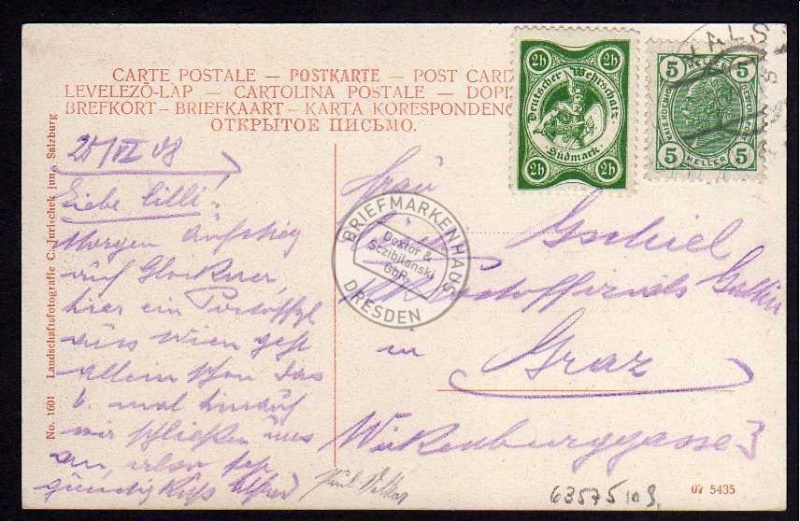 CARTE POSTALE — POSTKARTE — POST CARD
LEVELEZŐ-LAP — CARTOLINA POSTALE — DOPI
BREFKORT — BRIEFKAART — KARTA KORESPONDENC
ОТКРЫТОЕ ПИСЬМО.
2h 2h
Deutscher Wehrschatz
Südmark.
2h 2h
5 HELLER 5
5 HELLER 5
No. 1601 Landschaftsfotografie C. Jurischek jun., Salzburg
Liebe Cilli!
Morgen Aufstieg
auf Glockner,
hier ein
aus Wien geht
allein schon das
6. mal hinauf
wir schließen uns
an,
günstig Kuß Alfred
Frau
Gschiel
Gattin
in
Graz
Wickenburggasse 3
BRIEFMARKENHAUS
Dextor &
Stzibilanski
GbR
DRESDEN
63575109
07 5435